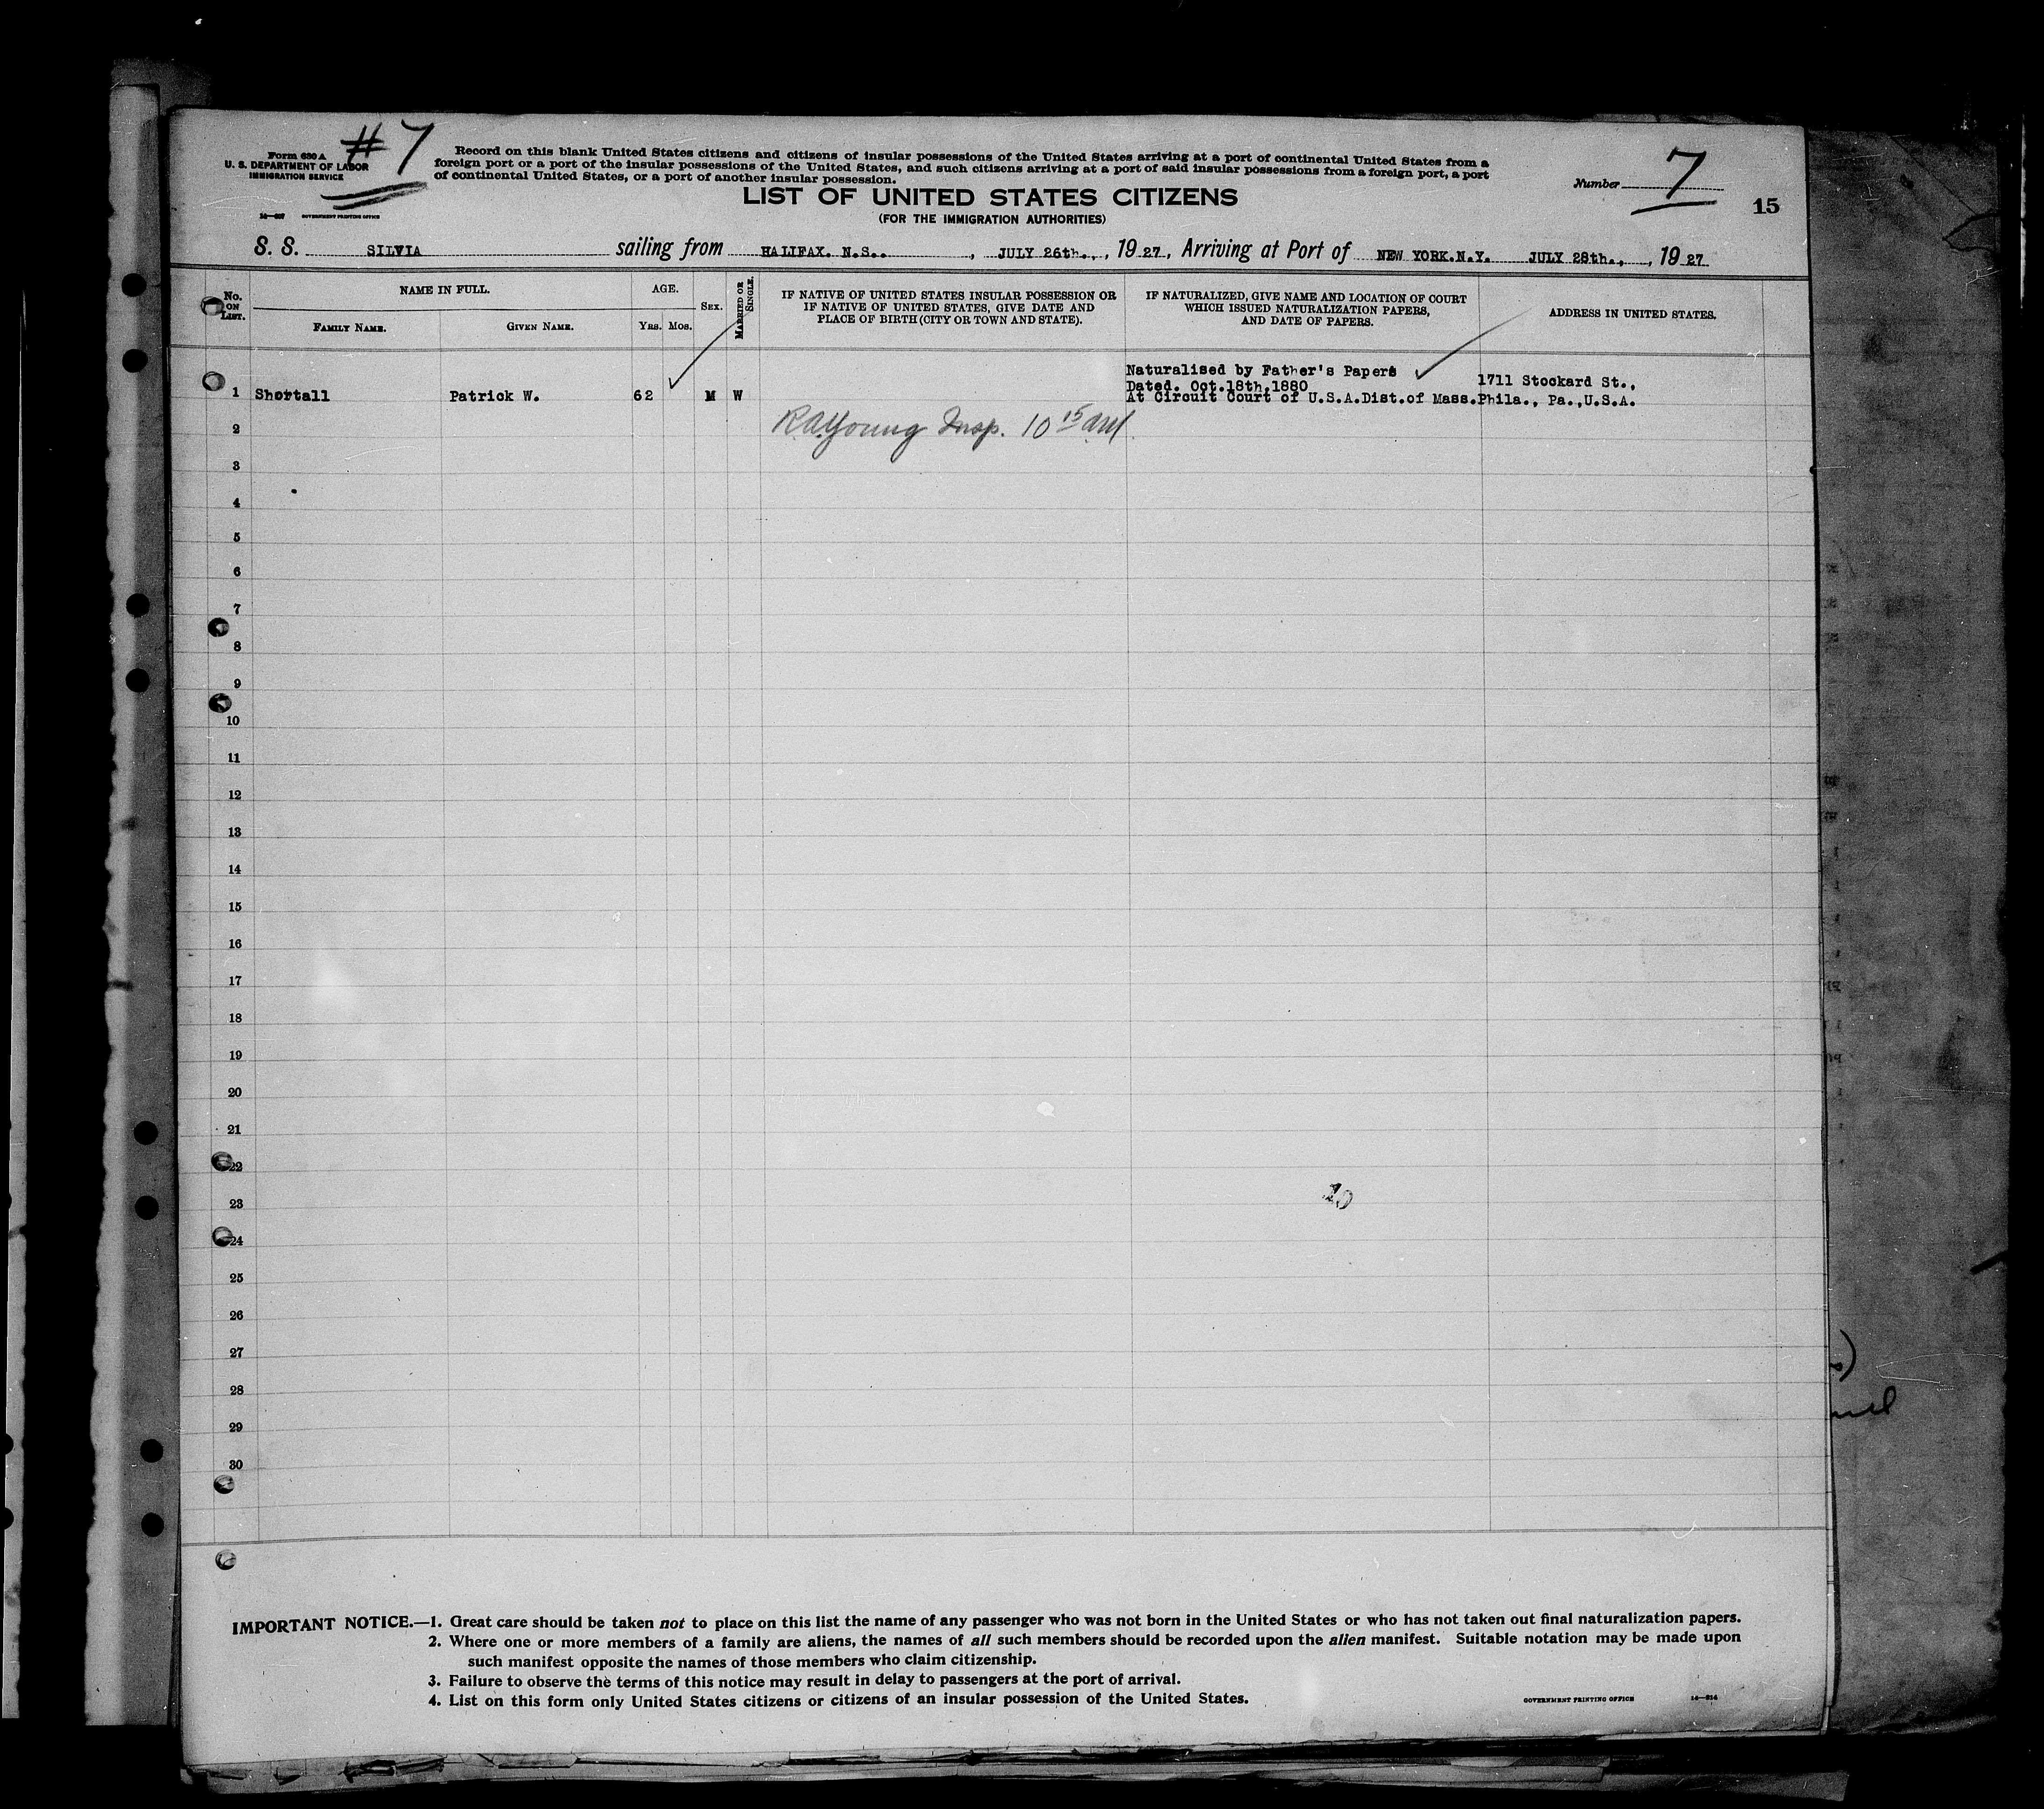 #7
Form 630 A
U. S. DEPARTMENT OF LABOR
IMMIGRATION SERVICE
GOVERNMENT PRINTING OFFICE
Record on this blank United States citizens and citizens of insular possessions of the United States arriving at a port of continental United States from a
foreign port or a port of the insular possessions of the United States, and such citizens arriving at a port of said insular possessions from a foreign port, a port
of continental United States, or a port of another insular possession.
LIST OF UNITED STATES CITIZENS
(FOR THE IMMIGRATION AUTHORITIES)
Number 7
15
S. S. SILVIA sailing from HALIFAX. N.S.. , JULY 26th., , 1927, Arriving at Port of NEW YORK.N.Y. JULY 28th., , 1927
No. ON LIST.
NAME IN FULL.
FAMILY NAME.
GIVEN NAME.
AGE.
YRS. MOS.
SEX.
MARRIED OR SINGLE.
IF NATIVE OF UNITED STATES INSULAR POSSESSION OR
IF NATIVE OF UNITED STATES, GIVE DATE AND
PLACE OF BIRTH (CITY OR TOWN AND STATE).
IF NATURALIZED, GIVE NAME AND LOCATION OF COURT
WHICH ISSUED NATURALIZATION PAPERS,
AND DATE OF PAPERS.
ADDRESS IN UNITED STATES.
Naturalised by Father's Papers
Dated. Oct.18th.1880
1711 Stockard St.,
1 Shortall Patrick W. 62 M W At Circuit Court of U.S.A.Dist.of Mass. Phila., Pa.,U.S.A.
2 RA Young Insp. 10 15 AM
3
4
5
6
7
8
9
10
11
12
13
14
15
16
17
18
19
20
21
22
23
24
25
26
27
28
29
30
IMPORTANT NOTICE.—1. Great care should be taken not to place on this list the name of any passenger who was not born in the United States or who has not taken out final naturalization papers.
2. Where one or more members of a family are aliens, the names of all such members should be recorded upon the alien manifest. Suitable notation may be made upon
such manifest opposite the names of those members who claim citizenship.
3. Failure to observe the terms of this notice may result in delay to passengers at the port of arrival.
4. List on this form only United States citizens or citizens of an insular possession of the United States.
GOVERNMENT PRINTING OFFICE